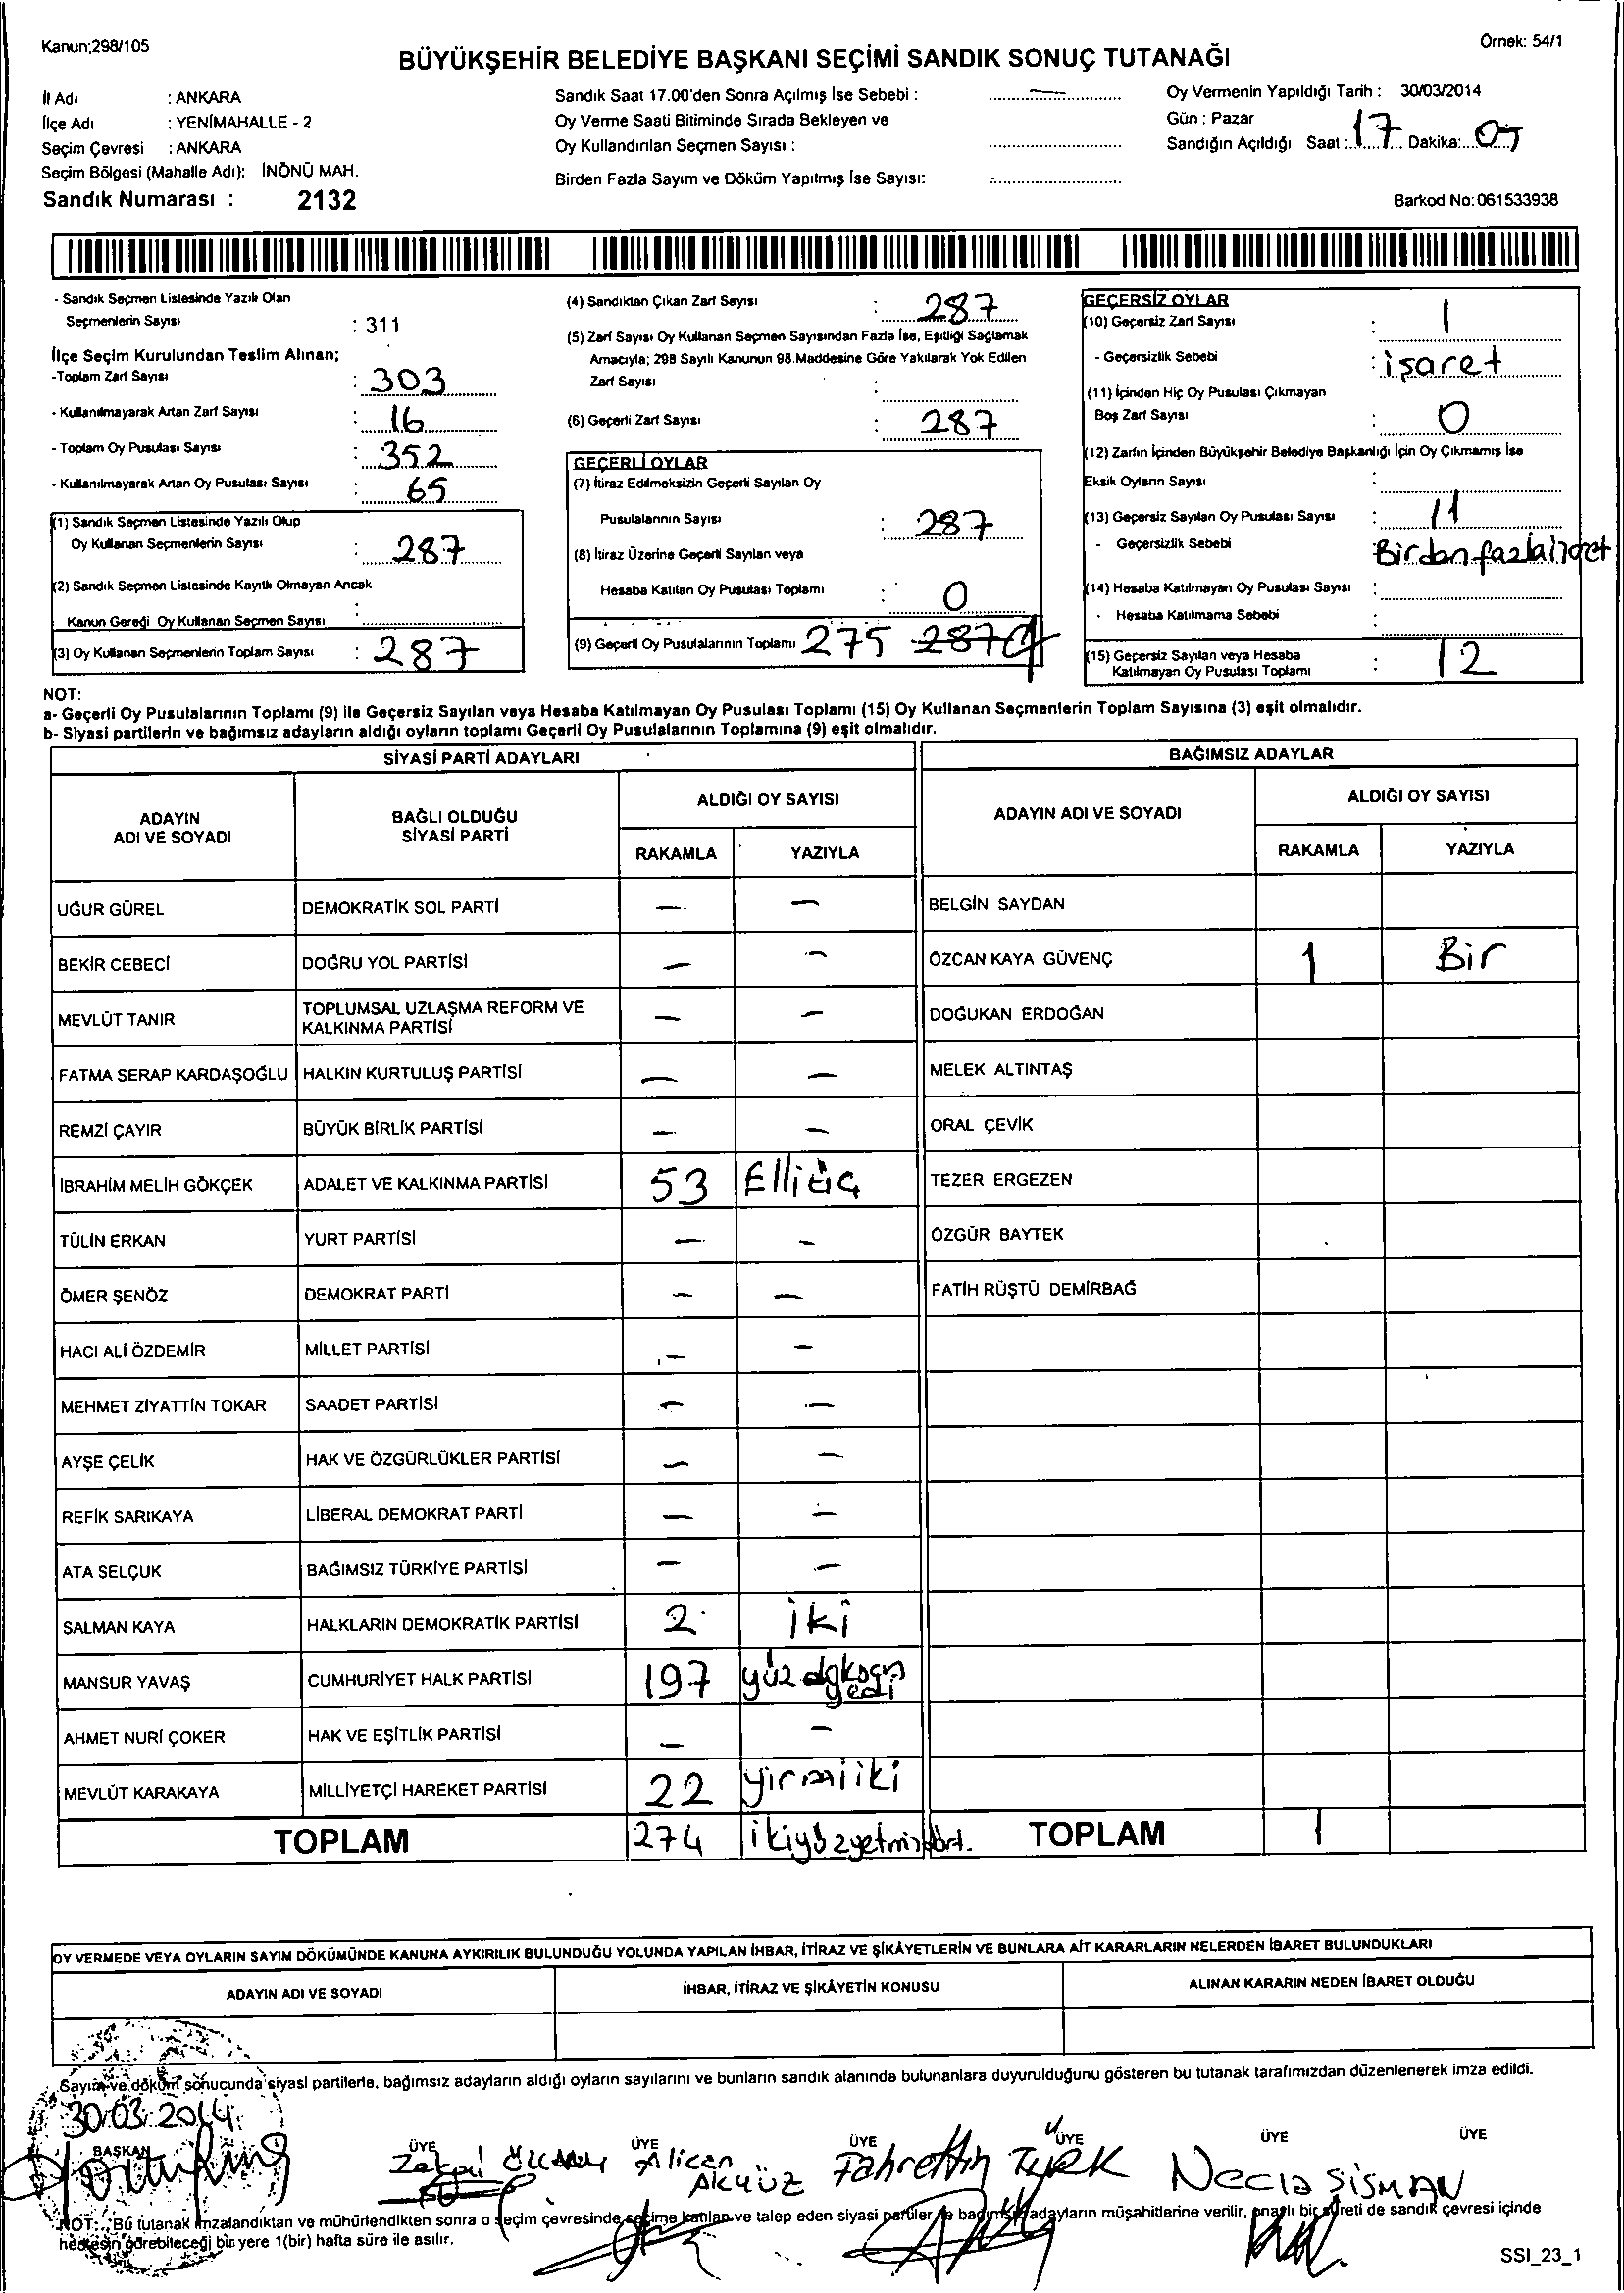 Kanun;298/105
Örnek: 54/1
BÜYÜKŞEHİR BELEDİYE BAŞKANI SEÇİMİ SANDIK SONUÇ TUTANAĞI
İl Adı : ANKARA
İlçe Adı : YENİMAHALLE - 2
Seçim Çevresi : ANKARA
Seçim Bölgesi (Mahalle Adı): İNÖNÜ MAH.
Sandık Numarası : 2132
Sandık Saat 17.00'den Sonra Açılmış İse Sebebi :
Oy Verme Saati Bitiminde Sırada Bekleyen ve
Oy Kullandırılan Seçmen Sayısı :
Birden Fazla Sayım ve Döküm Yapılmış İse Sayısı:
Oy Vermenin Yapıldığı Tarih : 30/03/2014
Gün : Pazar
Sandığın Açıldığı Saat : 17 Dakika: 05
Barkod No:061533938
- Sandık Seçmen Listesinde Yazılı Olan
Seçmenlerin Sayısı : 311
İlçe Seçim Kurulundan Teslim Alınan;
-Toplam Zarf Sayısı : 303
- Kullanılmayarak Artan Zarf Sayısı : 16
- Toplam Oy Pusulası Sayısı : 352
- Kullanılmayarak Artan Oy Pusulası Sayısı : 65
(1) Sandık Seçmen Listesinde Yazılı Olup
Oy Kullanan Seçmenlerin Sayısı : 287
(2) Sandık Seçmen Listesinde Kayıtlı Olmayan Ancak
Kanun Gereği Oy Kullanan Seçmen Sayısı :
(3) Oy Kullanan Seçmenlerin Toplam Sayısı : 287
(4) Sandıktan Çıkan Zarf Sayısı : 287
(5) Zarf Sayısı Oy Kullanan Seçmen Sayısından Fazla İse, Eşitliği Sağlamak
Amacıyla; 298 Sayılı Kanunun 98.Maddesine Göre Yakılarak Yok Edilen
Zarf Sayısı :
(6) Geçerli Zarf Sayısı : 287
GEÇERLİ OYLAR
(7) İtiraz Edilmeksizin Geçerli Sayılan Oy
Pusulalarının Sayısı : 287
(8) İtiraz Üzerine Geçerli Sayılan veya
Hesaba Katılan Oy Pusulası Toplamı : 0
(9) Geçerli Oy Pusulalarının Toplamı 275 287
GEÇERSİZ OYLAR
(10) Geçersiz Zarf Sayısı : 1
- Geçersizlik Sebebi : işaret
(11) İçinden Hiç Oy Pusulası Çıkmayan
Boş Zarf Sayısı : 0
(12) Zarfın İçinden Büyükşehir Belediye Başkanlığı İçin Oy Çıkmamış İse
Eksik Oyların Sayısı :
(13) Geçersiz Sayılan Oy Pusulası Sayısı : 11
- Geçersizlik Sebebi Birden fazla
(14) Hesaba Katılmayan Oy Pusulası Sayısı :
- Hesaba Katılmama Sebebi :
(15) Geçersiz Sayılan veya Hesaba
Katılmayan Oy Pusulası Toplamı : 12
NOT:
a- Geçerli Oy Pusulalarının Toplamı (9) ile Geçersiz Sayılan veya Hesaba Katılmayan Oy Pusulası Toplamı (15) Oy Kullanan Seçmenlerin Toplam Sayısına (3) eşit olmalıdır.
b- Siyasi partilerin ve bağımsız adayların aldığı oyların toplamı Geçerli Oy Pusulalarının Toplamına (9) eşit olmalıdır.
SİYASİ PARTİ ADAYLARI
BAĞIMSIZ ADAYLAR
ADAYIN
ADI VE SOYADI
BAĞLI OLDUĞU
SİYASİ PARTİ
ALDIĞI OY SAYISI
RAKAMLA YAZIYLA
ADAYIN ADI VE SOYADI
ALDIĞI OY SAYISI
RAKAMLA YAZIYLA
UĞUR GÜREL DEMOKRATİK SOL PARTİ — — BELGİN SAYDAN
BEKİR CEBECİ DOĞRU YOL PARTİSİ — — ÖZCAN KAYA GÜVENÇ 1 Bir
MEVLÜT TANIR TOPLUMSAL UZLAŞMA REFORM VE
KALKINMA PARTİSİ — — DOĞUKAN ERDOĞAN
FATMA SERAP KARDAŞOĞLU HALKIN KURTULUŞ PARTİSİ — — MELEK ALTINTAŞ
REMZİ ÇAYIR BÜYÜK BİRLİK PARTİSİ — — ORAL ÇEVİK
İBRAHİM MELİH GÖKÇEK ADALET VE KALKINMA PARTİSİ 53 Elliüç TEZER ERGEZEN
TÜLİN ERKAN YURT PARTİSİ — — ÖZGÜR BAYTEK
ÖMER ŞENÖZ DEMOKRAT PARTİ — — FATİH RÜŞTÜ DEMİRBAĞ
HACI ALİ ÖZDEMİR MİLLET PARTİSİ — —
MEHMET ZİYATTİN TOKAR SAADET PARTİSİ — —
AYŞE ÇELİK HAK VE ÖZGÜRLÜKLER PARTİSİ — —
REFİK SARIKAYA LİBERAL DEMOKRAT PARTİ — —
ATA SELÇUK BAĞIMSIZ TÜRKİYE PARTİSİ — —
SALMAN KAYA HALKLARIN DEMOKRATİK PARTİSİ 2 iki
MANSUR YAVAŞ CUMHURİYET HALK PARTİSİ 197 yüz doksan
yedi
AHMET NURİ ÇOKER HAK VE EŞİTLİK PARTİSİ — —
MEVLÜT KARAKAYA MİLLİYETÇİ HAREKET PARTİSİ 22 yirmiiki
TOPLAM 274 ikiyüzyetmişdört. TOPLAM 1
OY VERMEDE VEYA OYLARIN SAYIM DÖKÜMÜNDE KANUNA AYKIRILIK BULUNDUĞU YOLUNDA YAPILAN İHBAR, İTİRAZ VE ŞİKÂYETLERİN VE BUNLARA AİT KARARLARIN NELERDEN İBARET BULUNDUKLARI
ADAYIN ADI VE SOYADI İHBAR, İTİRAZ VE ŞİKÂYETİN KONUSU ALINAN KARARIN NEDEN İBARET OLDUĞU
Sayım ve döküm sonucunda siyasi partilerle, bağımsız adayların aldığı oyların sayılarını ve bunların sandık alanında bulunanlara duyurulduğunu gösteren bu tutanak tarafımızdan düzenlenerek imza edildi.
30.03.2014
BAŞKAN ÜYE ÜYE ÜYE ÜYE ÜYE ÜYE
Alican
Akyüz
Fahrettin Türk
Necla ŞİŞMAN
NOT: Bu tutanak imzalandıktan ve mühürlendikten sonra o seçim çevresinde seçime katılan ve talep eden siyasi partiler ile bağımsız adayların müşahitlerine verilir, onaylı bir sureti de sandık çevresi içinde
herkesin görebileceği bir yere 1(bir) hafta süre ile asılır.
SSI_23_1